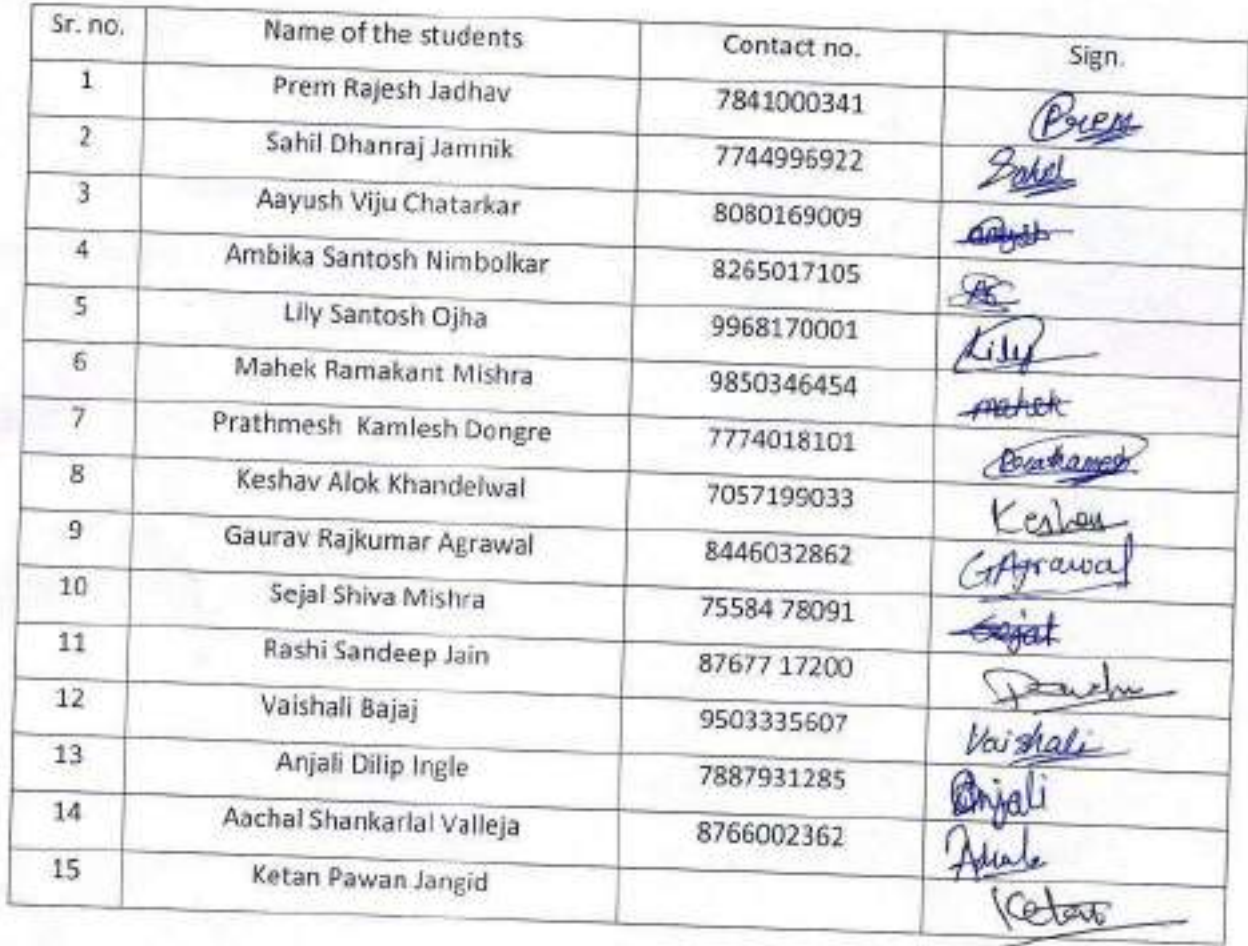 Sr. no. Name of the students Contact no. Sign.
1 Prem Rajesh Jadhav 7841000341 Prem
2 Sahil Dhanraj Jamnik 7744996922 Sahil
3 Aayush Viju Chatarkar 8080169009
4 Ambika Santosh Nimbolkar 8265017105
5 Lily Santosh Ojha 9968170001 Lily
6 Mahek Ramakant Mishra 9850346454 mahek
7 Prathmesh Kamlesh Dongre 7774018101
8 Keshav Alok Khandelwal 7057199033 Keshav
9 Gaurav Rajkumar Agrawal 8446032862 GAgrawal
10 Sejal Shiva Mishra 75584 78091 Sejal
11 Rashi Sandeep Jain 87677 17200
12 Vaishali Bajaj 9503335607 Vaishali
13 Anjali Dilip Ingle 7887931285 Anjali
14 Aachal Shankarlal Valleja 8766002362
15 Ketan Pawan Jangid Ketan